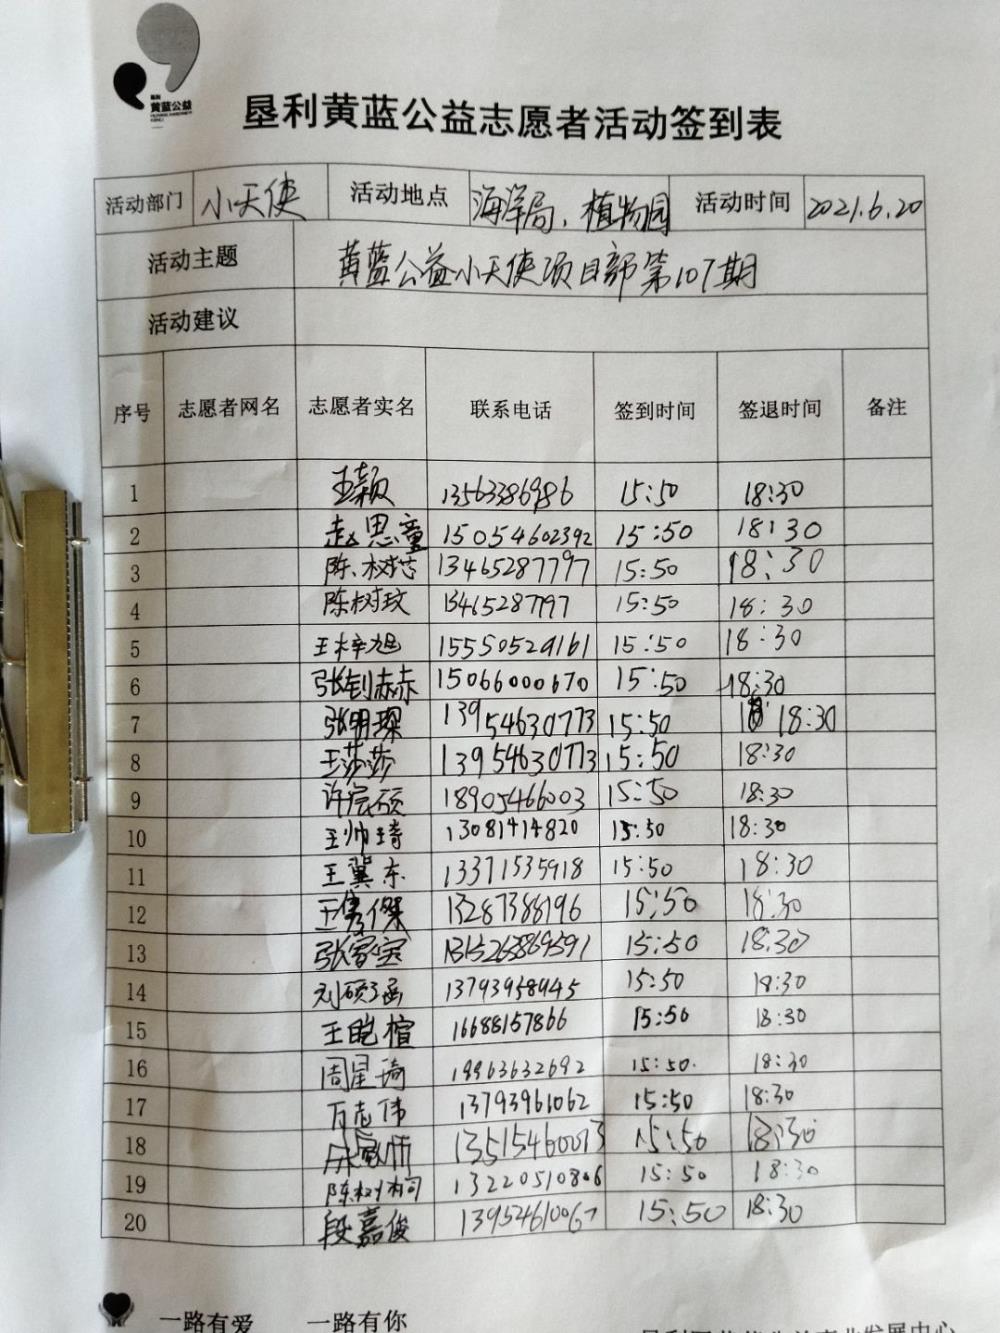 黄蓝公益
垦利黄蓝公益志愿者活动签到表
活动部门 小天使 活动地点 海洋局、植物园 活动时间 2021.6.20
活动主题 黄蓝公益小天使项目部第107期
活动建议
序号 志愿者网名 志愿者实名 联系电话 签到时间 签退时间 备注
1 王颖 13563386986 15:50 18:30
2 赵思童 15054602392 15:50 18:30
3 陈树芯 13465287797 15:50 18:30
4 陈树玟 13465287797 15:50 18:30
5 王梓旭 15550529161 15:50 18:30
6 张钊赫 15066000670 15:50 18:30
7 张明琛 13954630773 15:50 18:30
8 王莎莎 13954630773 15:50 18:30
9 许宸硕 18905466003 15:50 18:30
10 王帅琦 13081414820 15:50 18:30
11 王冀东 13371535918 15:50 18:30
12 王隽傑 13287388196 15:50 18:30
13 张家宝 15:50 18:30
14 刘硕涵 13793958945 15:50 18:30
15 王晧楦 16688157866 15:50 18:30
16 周星琦 15:50. 18:30
17 万志伟 13793961062 15:50 18:30
18 13515460073 15:50 18:30
19 陈树桐 13220510806 15:50 18:30
20 段嘉俊 13954610067 15:50 18:30
一路有爱 一路有你